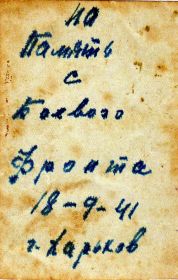 на
Память
с
Боевого
Фронта
18-9-41
г. Харьков